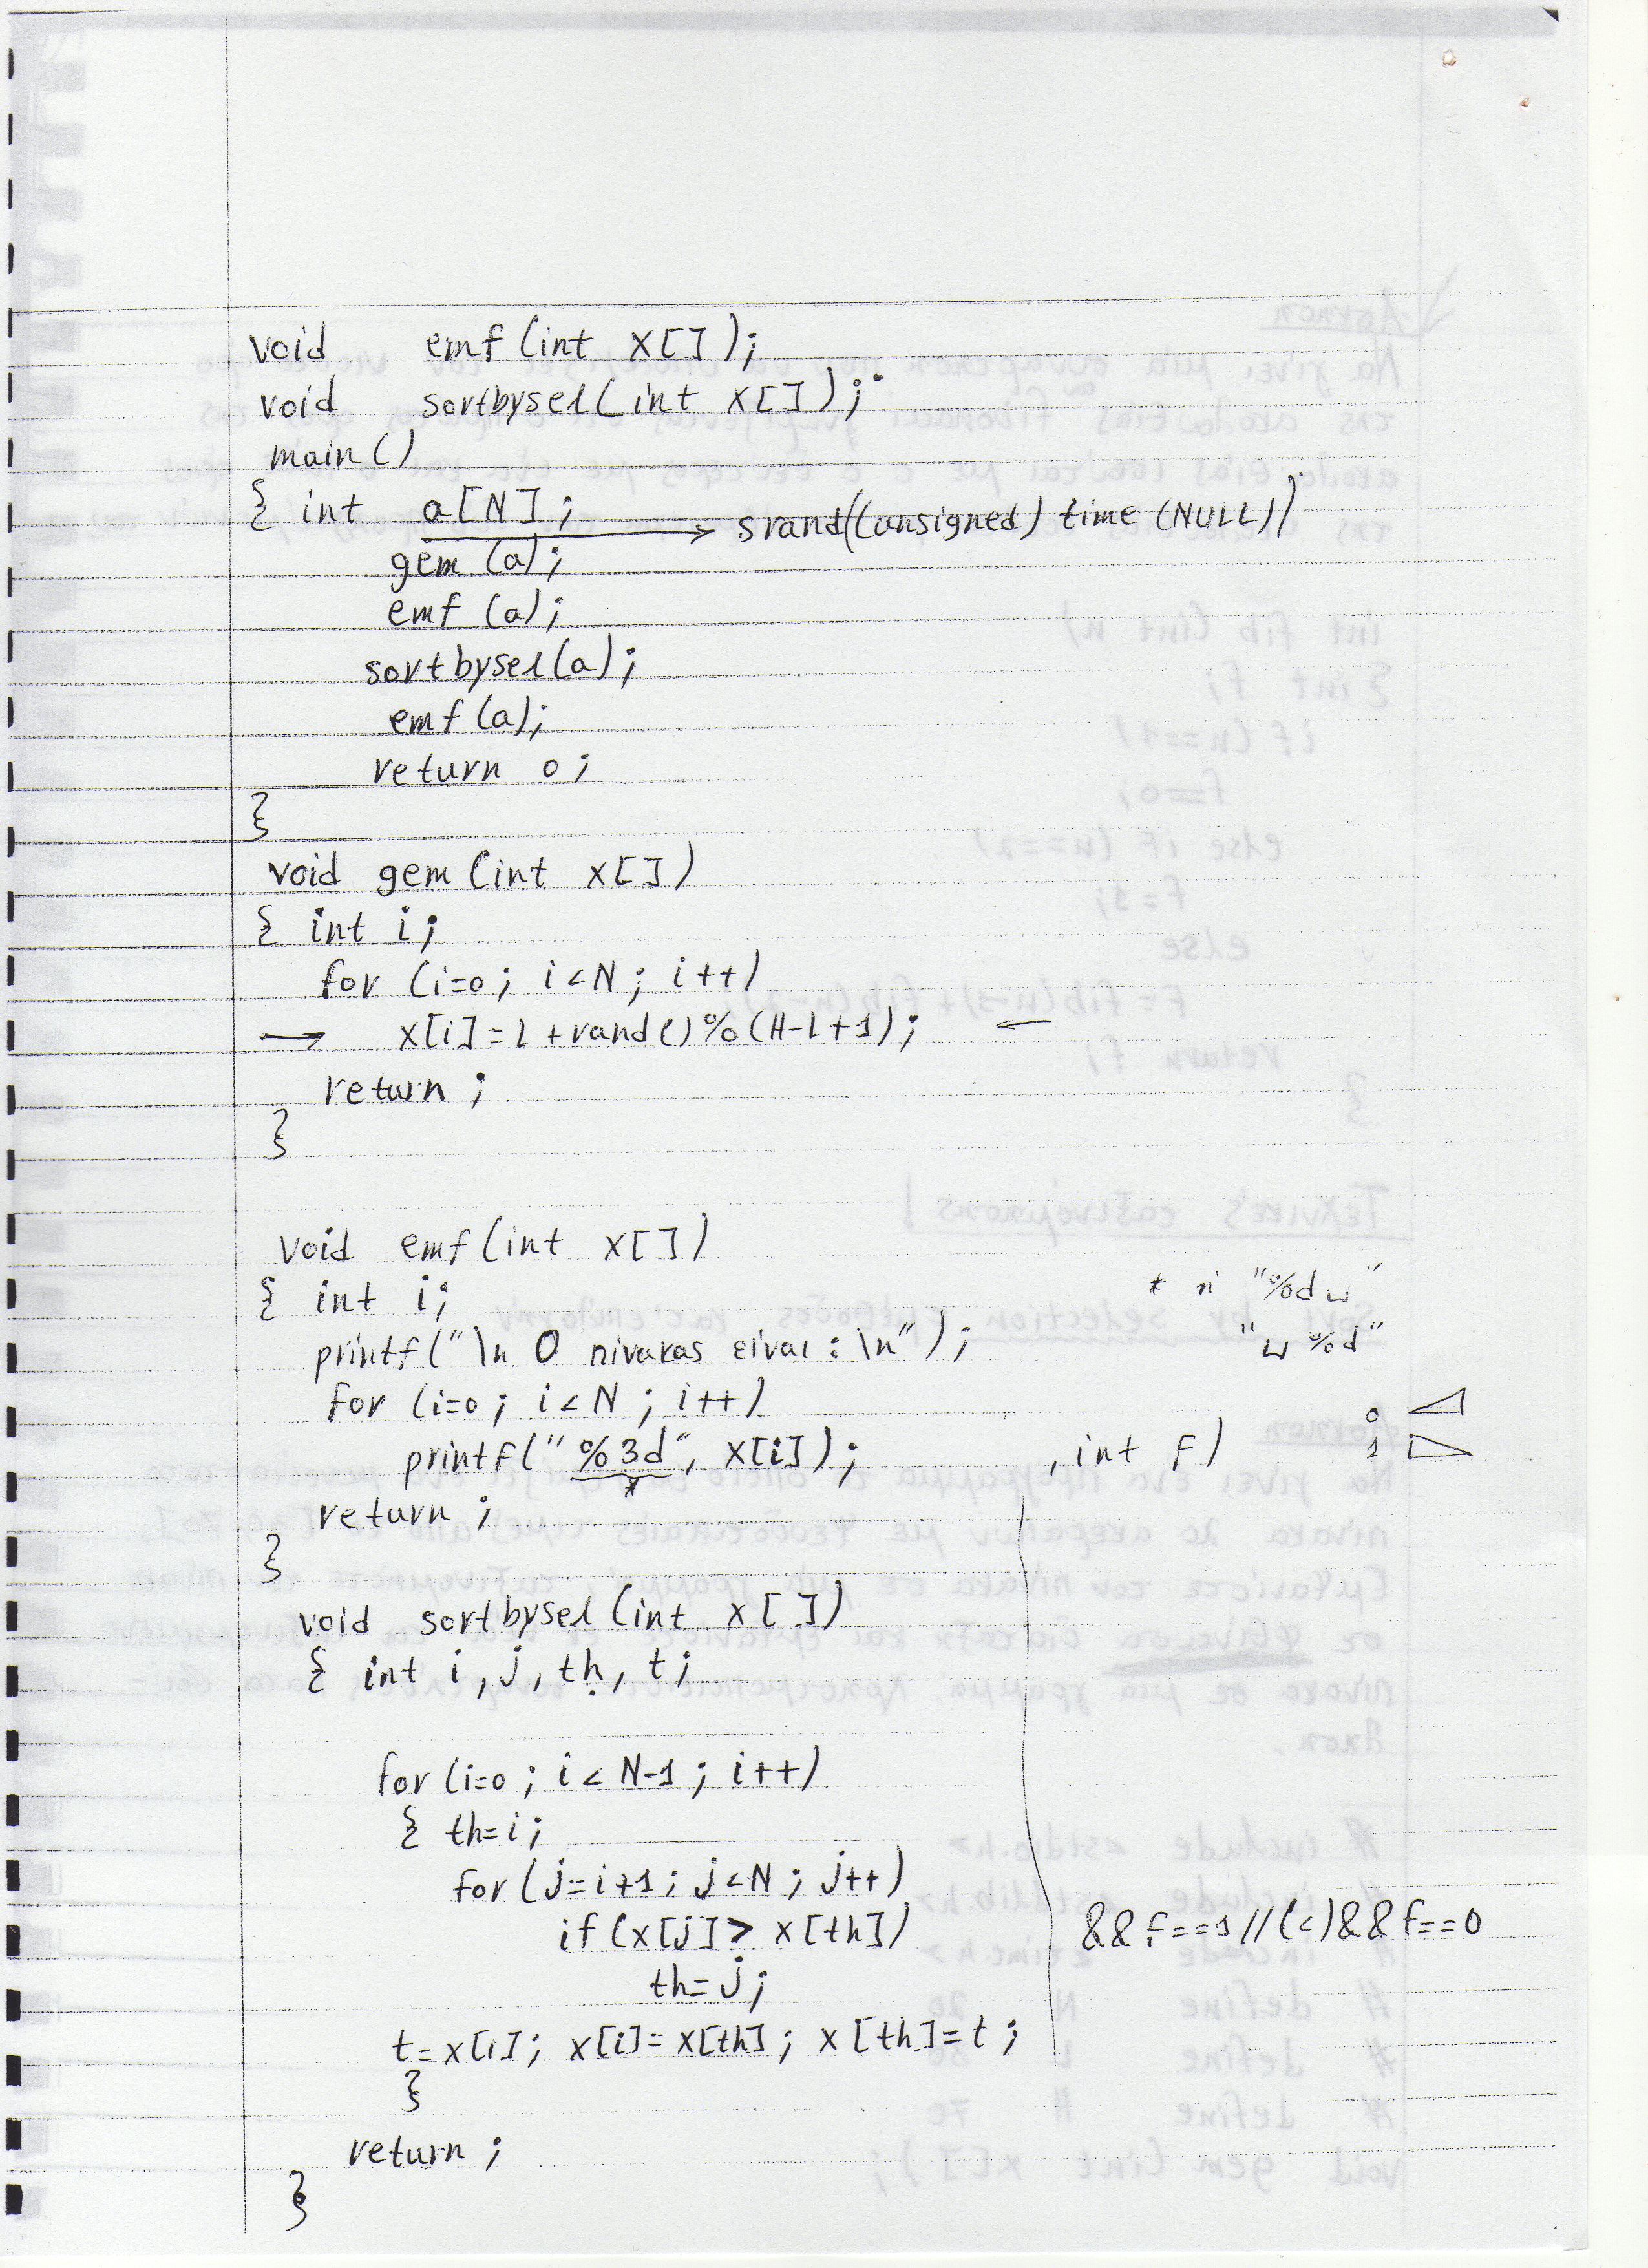 void emf (int x[]);
void sortbysel (int x[]);
main()
{ int a[N]; → srand((unsigned) time (NULL))
gem (a);
emf (a);
sortbysel(a);
emf(a);
return 0;
}
void gem (int x[])
{ int i;
for (i=0; i<N; i++)
→ x[i]=L+rand()%(H-L+1); ←
return;
}
void emf (int x[])
{ int i; * ή "%d␣"
printf("\n Ο πίνακας είναι:\n"); "␣%d"
for (i=0; i<N; i++) 0
printf("%3d", x[i]); , int f) 1
*
return;
}
void sortbysel (int x[])
{ int i, j, th, t;
for (i=0; i<N-1; i++)
{ th=i;
for (j=i+1; j<N; j++)
if (x[j]> x[th]) && f==1//(<)&&f==0
th=j;
t=x[i]; x[i]=x[th]; x[th]=t;
}
return;
}